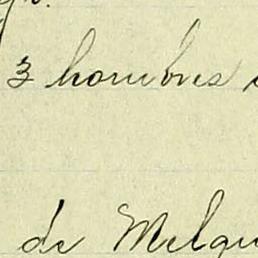 3 hombres
de Melqu